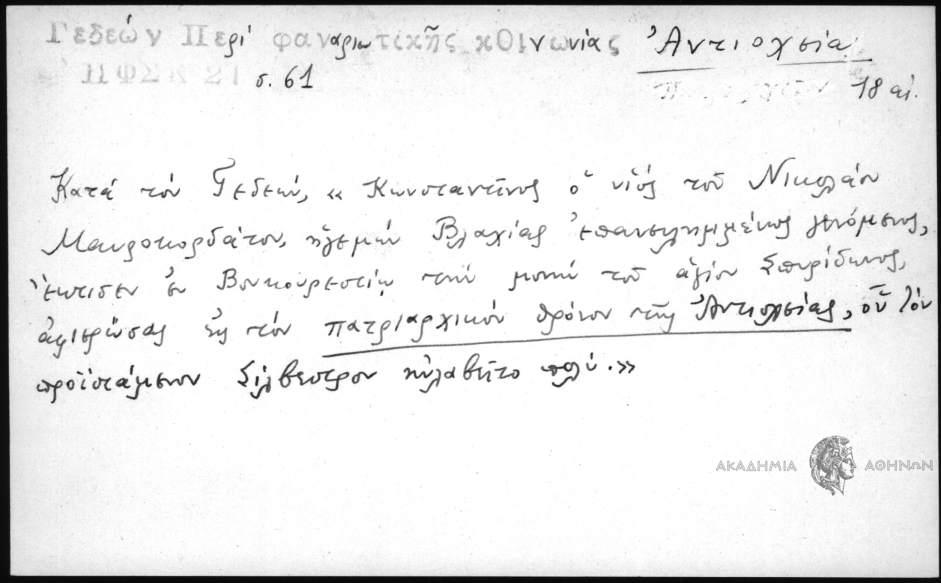 Γεδεών Περί φαναριωτικῆς κοινωνίας Ἀντιοχεία
ΠΦΣΚ 21 σ. 61
18 αἰ.
Κατά τόν Γεδεών, « Κωνσταντῖνος ὁ υἱός τοῦ Νικολάου
Μαυροκορδάτου, ἡγεμών Βλαχίας ἐπανειλημμένως γενόμενος,
ἔκτισεν ἐν Βουκουρεστίῳ τήν μονήν τοῦ ἁγίου Σπυρίδωνος,
ἀφιερώσας εἰς τόν πατριαρχικόν θρόνον τῆς Ἀντιοχείας, οὗ τόν
προϊστάμενον Σίλβεστρον ηὐλαβεῖτο πολύ. »
ΑΚΑΔΗΜΙΑ ΑΘΗΝΩΝ